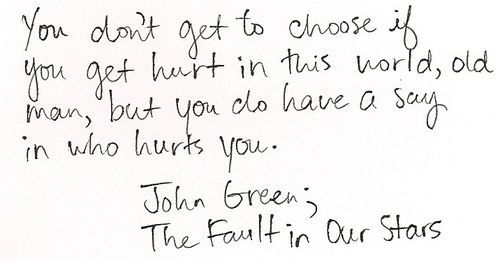 You don't get to choose if
you get hurt in this world, old
man, but you do have a say
in who hurts you.
John Green;
The Fault in Our Stars